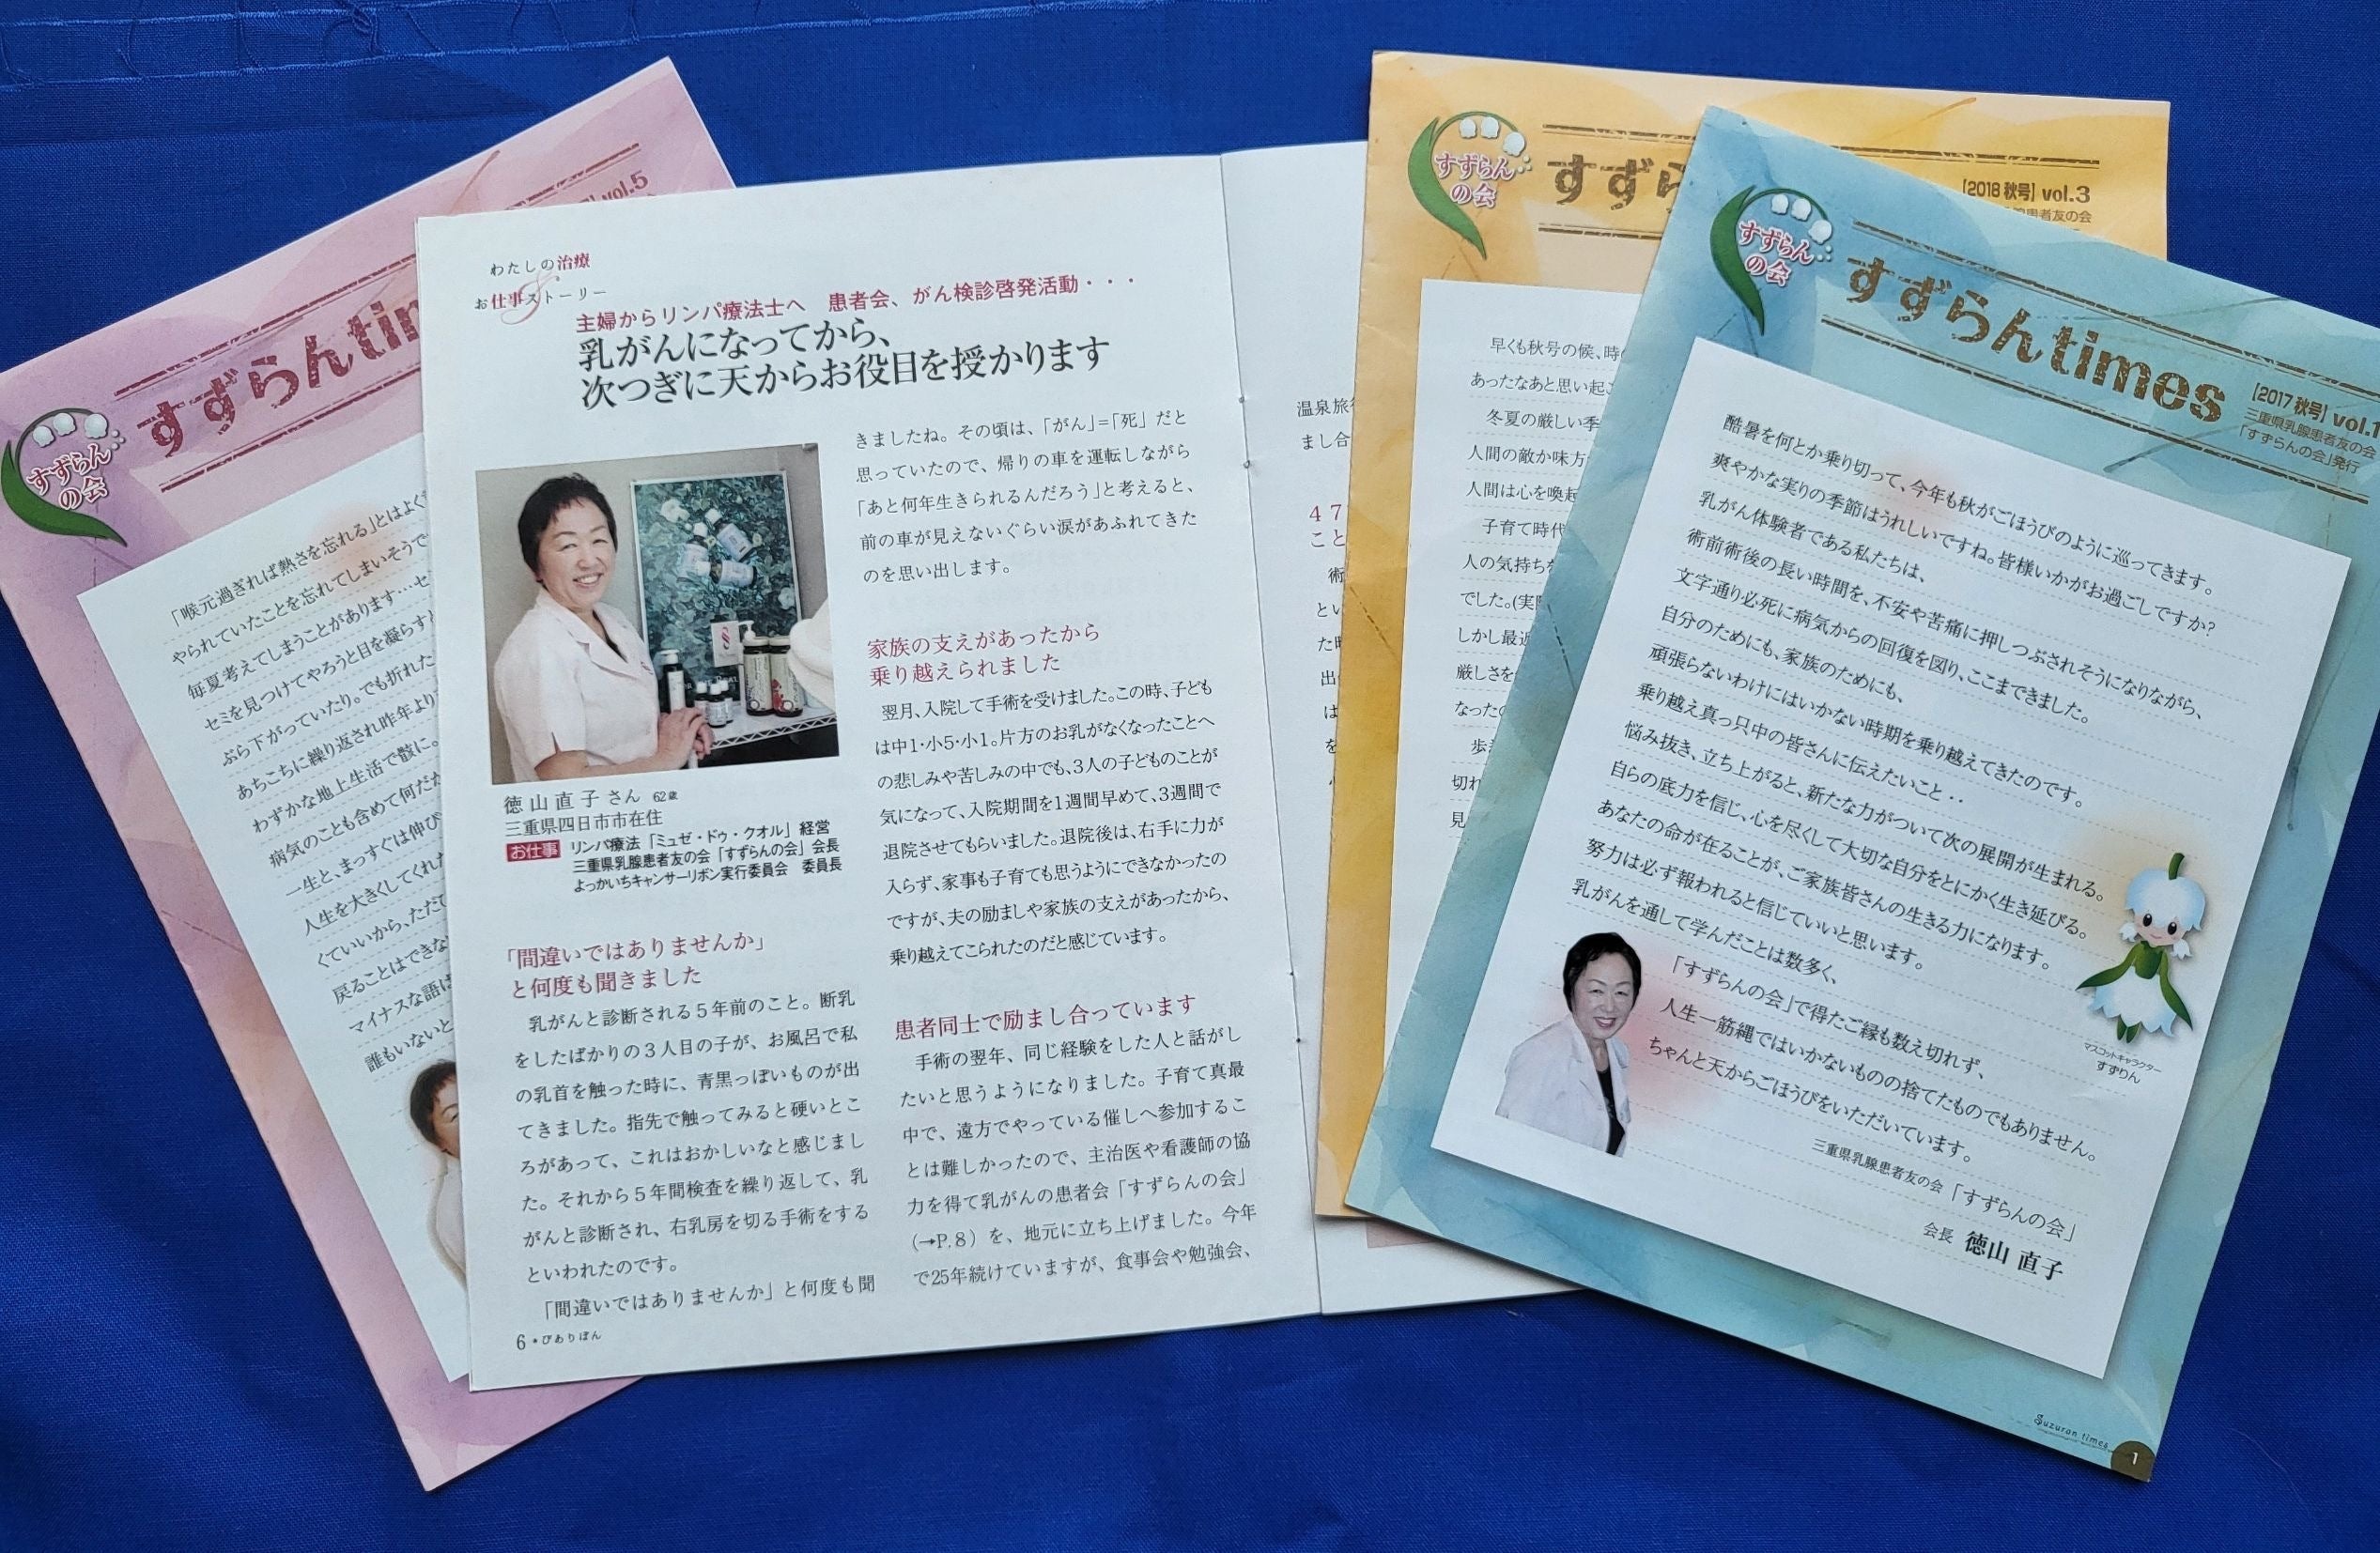 すずらんtim
vol.5
すずらん
の会
「喉元過ぎれば熱さを忘れる」とはよく
やられていたことを忘れてしまいそうで
毎夏考えてしまうことがあります…セ
セミを見つけてやろうと目を凝らすと
ぶら下がっていたり。でも折れた
あちこちに繰り返され昨年より
わずかな地上生活で骸に。
病気のことも含めて何だか
一生と、まっすぐは伸び
人生を大きくしてくれた
くていいから、ただで
戻ることはできな
マイナスな語は
誰もいないと
わたしの治療
&
お仕事ストーリー
主婦からリンパ療法士へ　患者会、がん検診啓発活動・・・
乳がんになってから、
次つぎに天からお役目を授かります
徳山直子さん 62歳
三重県四日市市在住
お仕事 リンパ療法「ミュゼ・ドゥ・クオル」経営
三重県乳腺患者友の会「すずらんの会」会長
よっかいちキャンサーリボン実行委員会　委員長
「間違いではありませんか」
と何度も聞きました
乳がんと診断される5年前のこと。断乳
をしたばかりの3人目の子が、お風呂で私
の乳首を触った時に、青黒っぽいものが出
てきました。指先で触ってみると硬いとこ
ろがあって、これはおかしいなと感じまし
た。それから5年間検査を繰り返して、乳
がんと診断され、右乳房を切る手術をする
といわれたのです。
「間違いではありませんか」と何度も聞
6・ぴありぼん
きましたね。その頃は、「がん」=「死」だと
思っていたので、帰りの車を運転しながら
「あと何年生きられるんだろう」と考えると、
前の車が見えないぐらい涙があふれてきた
のを思い出します。
家族の支えがあったから
乗り越えられました
翌月、入院して手術を受けました。この時、子ども
は中1・小5・小1。片方のお乳がなくなったことへ
の悲しみや苦しみの中でも、3人の子どものことが
気になって、入院期間を1週間早めて、3週間で
退院させてもらいました。退院後は、右手に力が
入らず、家事も子育ても思うようにできなかったの
ですが、夫の励ましや家族の支えがあったから、
乗り越えてこられたのだと感じています。
患者同士で励まし合っています
手術の翌年、同じ経験をした人と話がし
たいと思うようになりました。子育て真最
中で、遠方でやっている催しへ参加するこ
とは難しかったので、主治医や看護師の協
力を得て乳がんの患者会「すずらんの会」
(→P.8）を、地元に立ち上げました。今年
で25年続けていますが、食事会や勉強会、
温泉旅
まし合
47
こと
術
とい
た時
出
は
を
すずらん
の会
すずら
[2018 秋号] vol.3
患者友の会
早くも秋号の候、時
あったなあと思い起こ
冬夏の厳しい季
人間の敵か味方
人間は心を喚起
子育て時代
人の気持ちを
でした。(実
しかし最近
厳しさを
なったの
歩
切れ
見
すずらん
の会
すずらんtimes
[2017 秋号] vol.1
三重県乳腺患者友の会
「すずらんの会」発行
酷暑を何とか乗り切って、今年も秋がごほうびのように巡ってきます。
爽やかな実りの季節はうれしいですね。皆様いかがお過ごしですか?
乳がん体験者である私たちは、
術前術後の長い時間を、不安や苦痛に押しつぶされそうになりながら、
文字通り必死に病気からの回復を図り、ここまできました。
自分のためにも、家族のためにも、
頑張らないわけにはいかない時期を乗り越えてきたのです。
乗り越え真っ只中の皆さんに伝えたいこと・・
悩み抜き、立ち上がると、新たな力がついて次の展開が生まれる。
自らの底力を信じ、心を尽くして大切な自分をとにかく生き延びる。
あなたの命が在ることが、ご家族皆さんの生きる力になります。
努力は必ず報われると信じていいと思います。
乳がんを通して学んだことは数多く、
「すずらんの会」で得たご縁も数え切れず、
人生一筋縄ではいかないものの捨てたものでもありません。
ちゃんと天からごほうびをいただいています。
三重県乳腺患者友の会「すずらんの会」
会長 徳山 直子
マスコットキャラクター
すずりん
Suzuran times
1